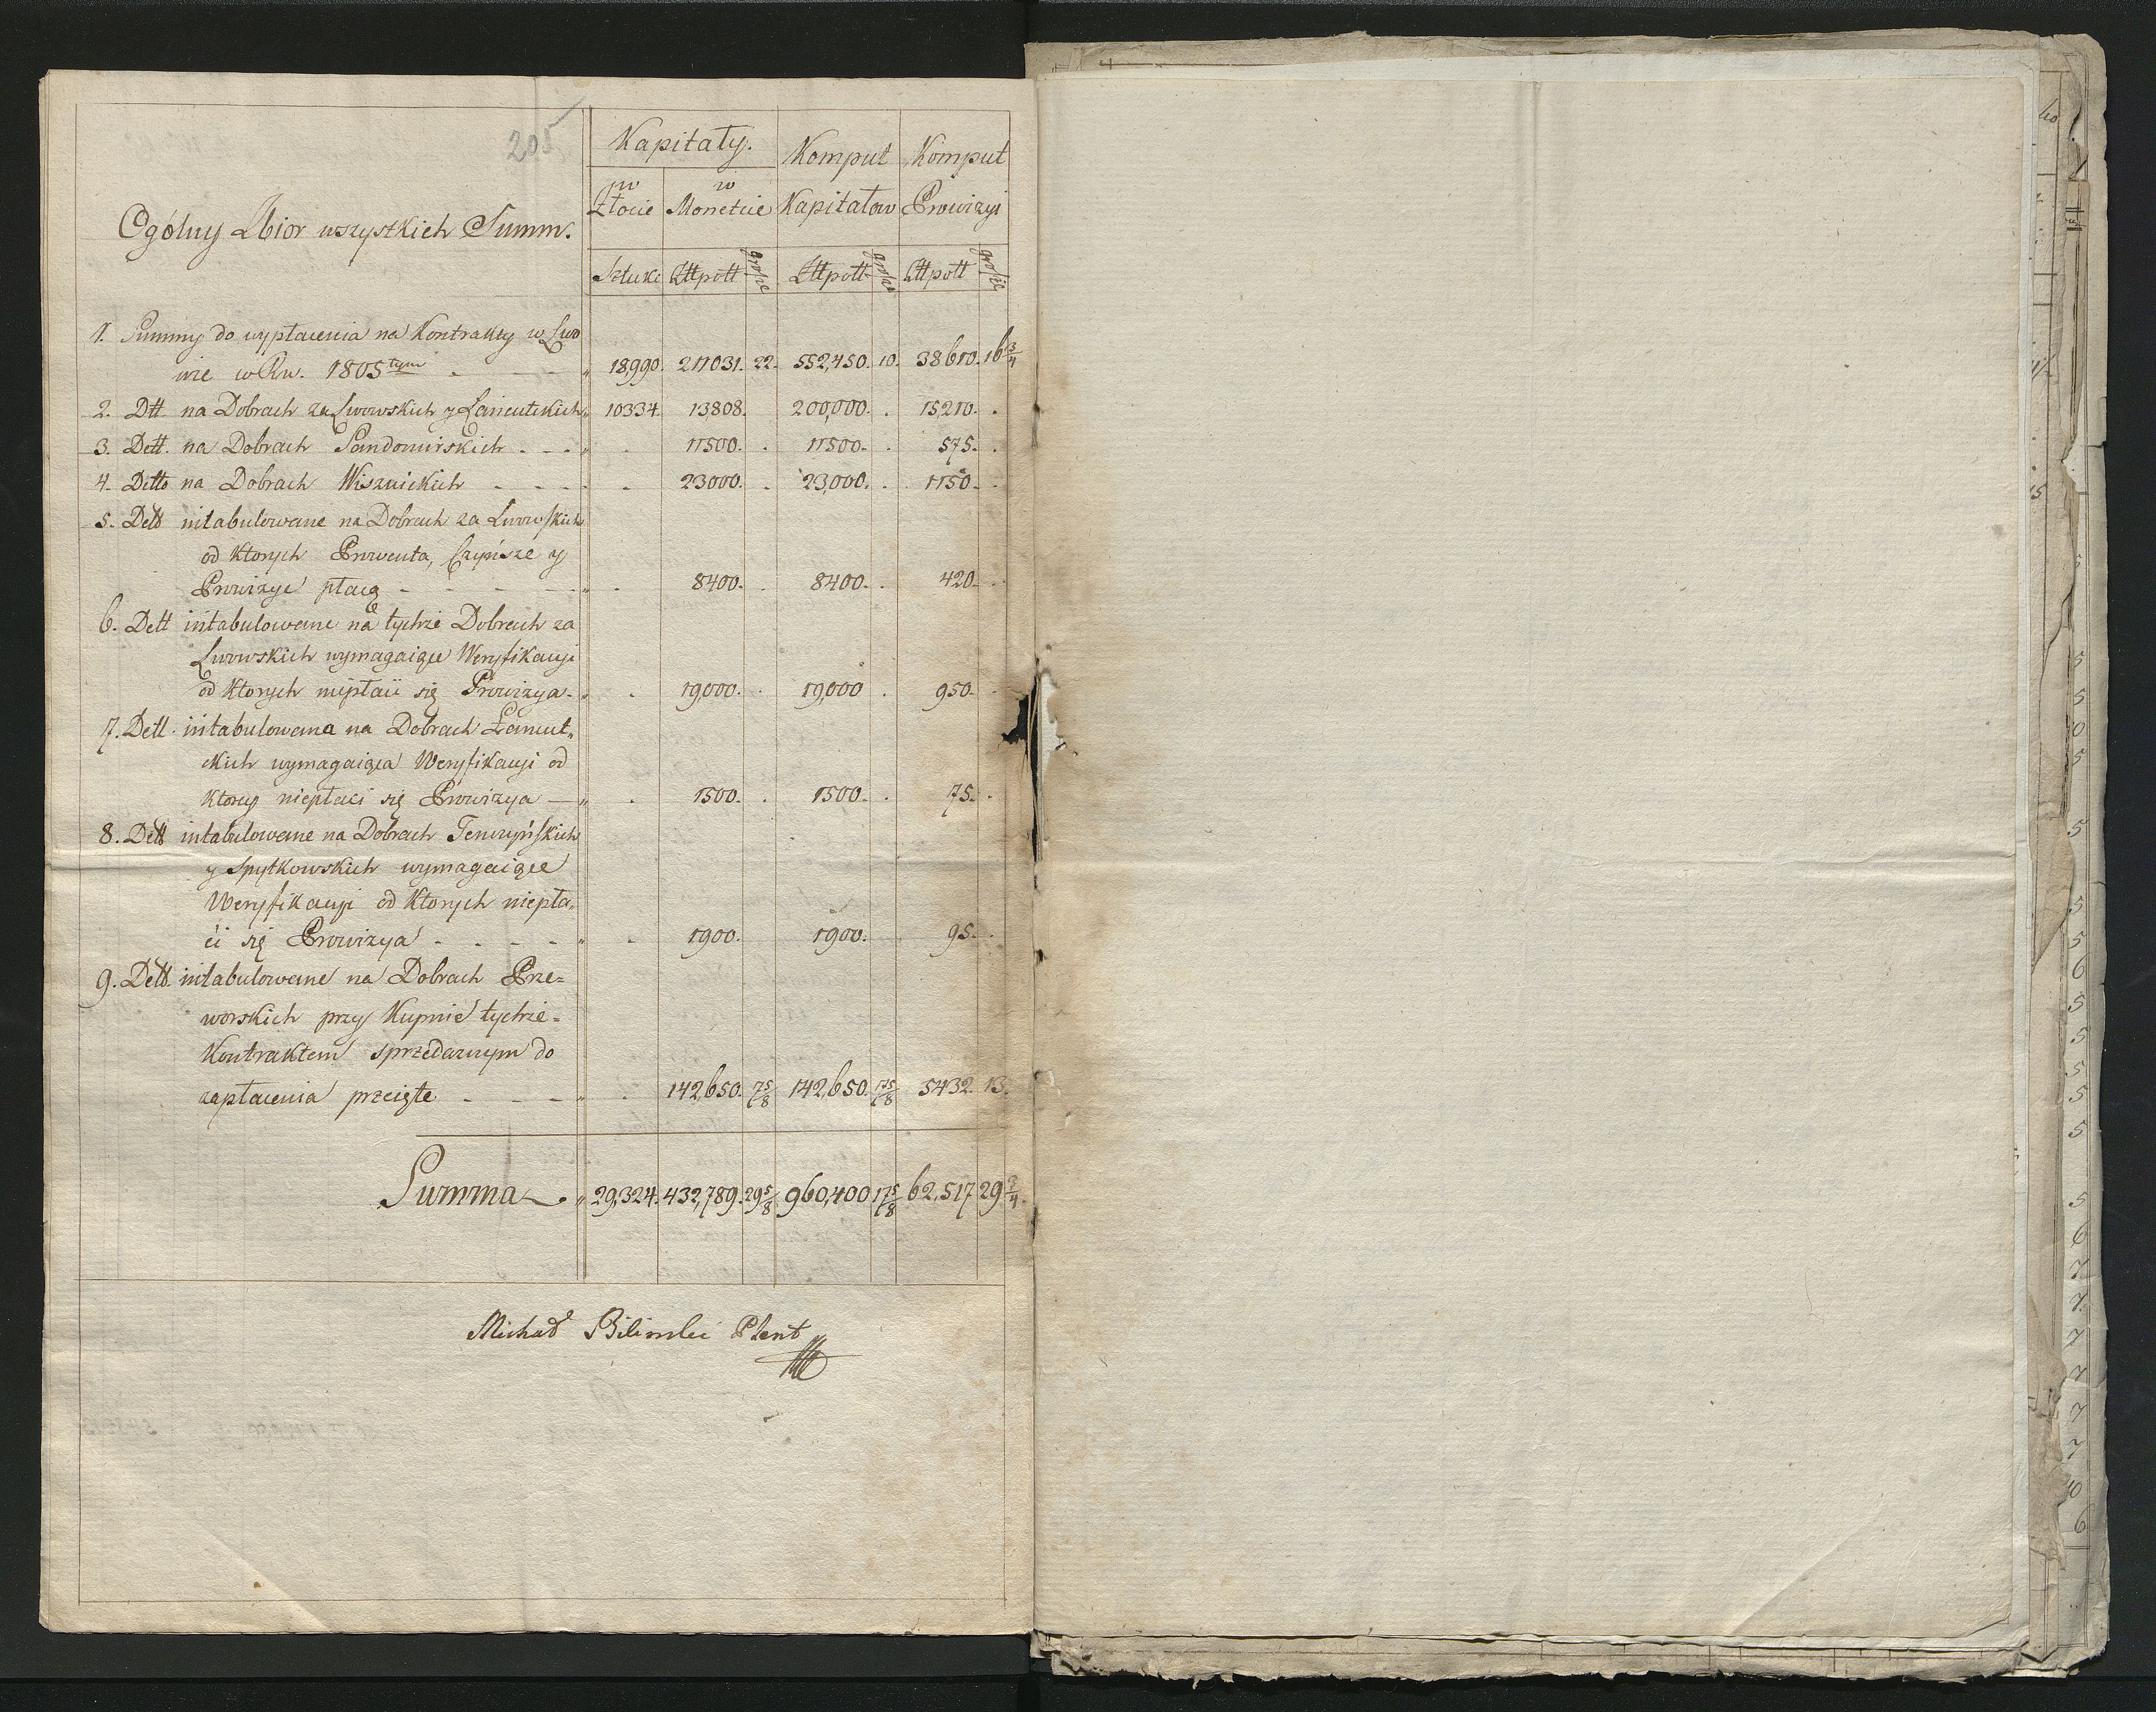 205
Kapitały. Komput Komput
w Złocie w Monetcie Kapitałow Prowizyi
Ogólny Zbior wszystkich Summ.
Sztuki Złlpoll grosze Złlpoll grosze Złlpoll grosze
1. Summy do wypłacenia na Kontrakty w Lwo
wie w Rw. 1805tym - - " 18,990. 211031. 22. 552,450. 10. 38610. 16 3/4
2. Dtt na Dobrach za Lwowskich y Łancutckich " 10334. 13808. 200,000. . 15,210. .
3. Dett. na Dobrach Sandomirskich - - - " . 11500. . 11500. . 575. .
4. Detto na Dobrach Wisznickich - - - - . 23000. . 23,000. . 1150. .
5. Dett intabulowane na Dobrach za Lwowskich
od Ktorych Prowenta, Czynsze y
Prowizye płacą - - - - " . 8400. . 8400. . 420. .
6. Dett intabulowane na tychże Dobrach za
Lwowskich wymagaiące Weryfikacyi
od Ktorych niepłaci się Prowizya - " . 19,000. . 19,000 . 950. .
7. Dett. intabulowana na Dobrach Łancut„
ckich wymagaiąca Weryfikacyi od
Ktorey niepłaci się Prowizya — " . 1500. . 1500. . 75. .
8. Dett intabulowane na Dobrach Tenczyńskich
y Spytkowskich wymagaiące
Weryfikacyi od Ktorych niepła„
ci się Prowizya - - - - " . 1900. 1900. 95. .
9. Dett. intabulowane na Dobrach Prze=
worskich przy Kupnie tychże -
Kontraktem sprzedaznym do
zapłacenia przeięte - - - " . 142,650. 7 5/8 142,650. 7 5/8 5432. 13.
Summa - . " 29,324. 432,789. 29 5/8 960,400 17 5/8 62,517 29 3/4.
Michał Bilinski Plent